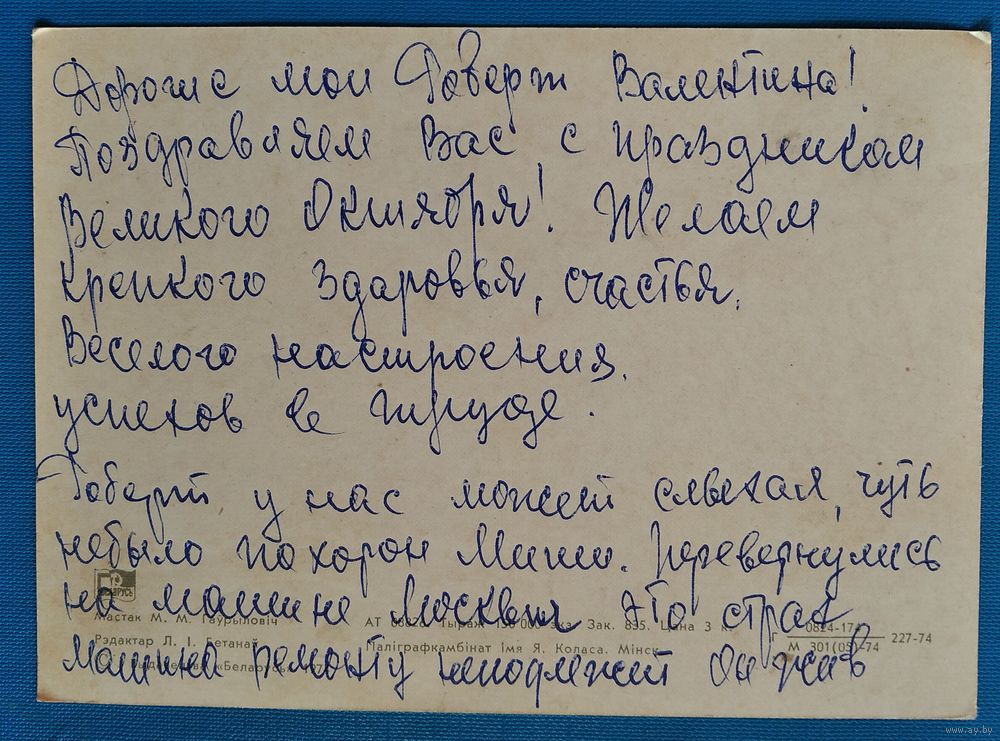 Дорогие мои Роберт Валентина!
Поздравляем Вас с праздником
Великого Октября! Желаем
крепкого здаровья, счастья,
Веселого настроения,
успехов в труде.
Роберт у нас может слыхал, чуть
небыло похорон Миши. Перевернулись
на машине Москвич это страх
машина ремонту неподлежит Он жив
БЕЛАРУСЬ
Мастак М. М. Гаўрыловіч
Рэдактар Л. І. Бетанаў
«Беларусь»
АТ Тыраж Зак. 835. Цана 3 к.
Паліграфкамбінат імя Я. Коласа. Мінск
Г 0824-174
М 301(05)-74 227-74
www.ay.by